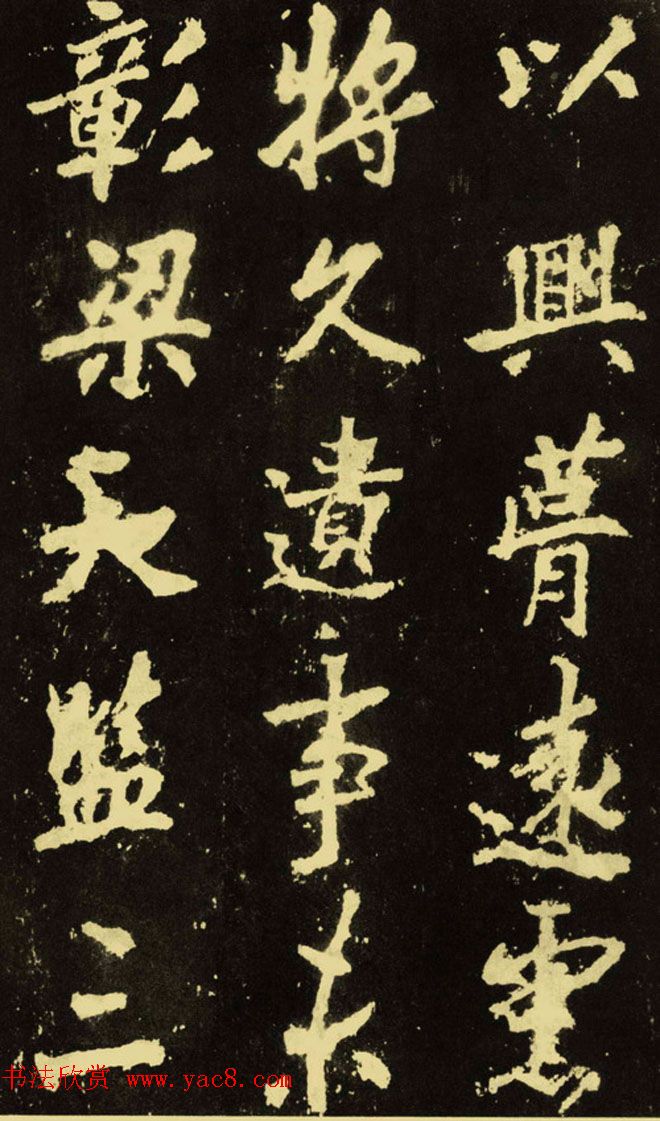 以興葺遠慮
將久遺事未
彰梁天監三
书法欣赏 www.yac8.com